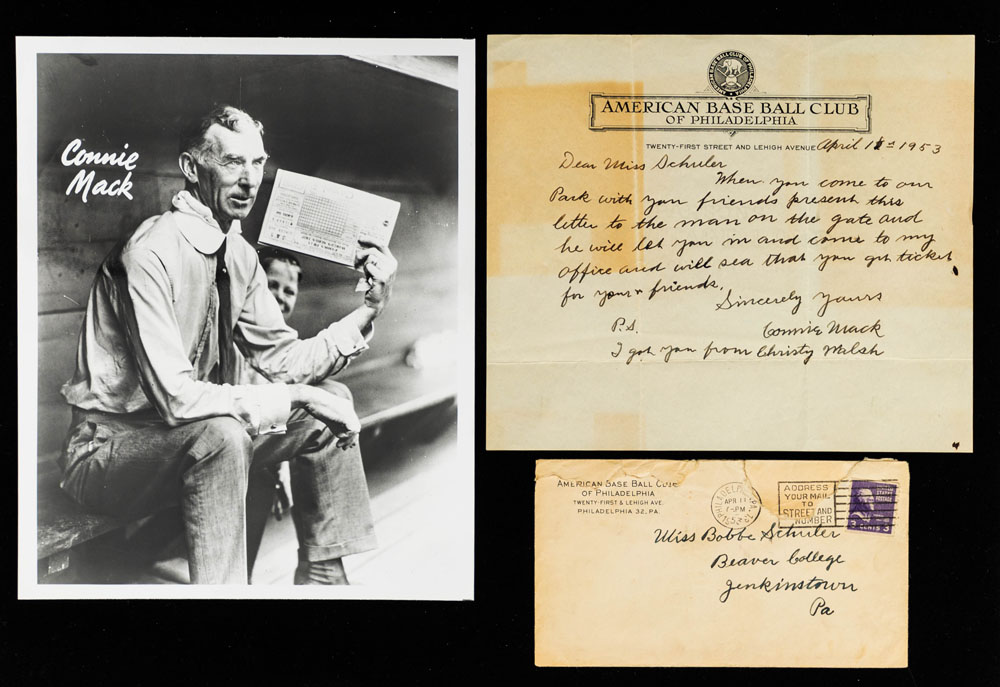 Connie
Mack
AMERICAN BASE BALL CLUB OF PHILADELPHIA
AMERICAN BASE BALL CLUB
OF PHILADELPHIA
TWENTY-FIRST STREET AND LEHIGH AVENUE April 1953
Dear Miss Schuler
When you come to our
Park with you friends present this
letter to the man on the gate and
he will let you in and come to my
office and will sea that you get ticket
for your friends.
Sincerely yours
P.S. Connie Mack
I got you from Christy Walsh
AMERICAN BASE BALL CLUB
OF PHILADELPHIA
TWENTY-FIRST & LEHIGH AVE.
PHILADELPHIA 32, PA.
PHILADELPHIA, PA.
APR 11
PM
1953
ADDRESS
YOUR MAIL
TO
STREET AND
NUMBER
3 CENTS 3
Miss Bobbe Schuler
Beaver College
Jenkinstown
Pa